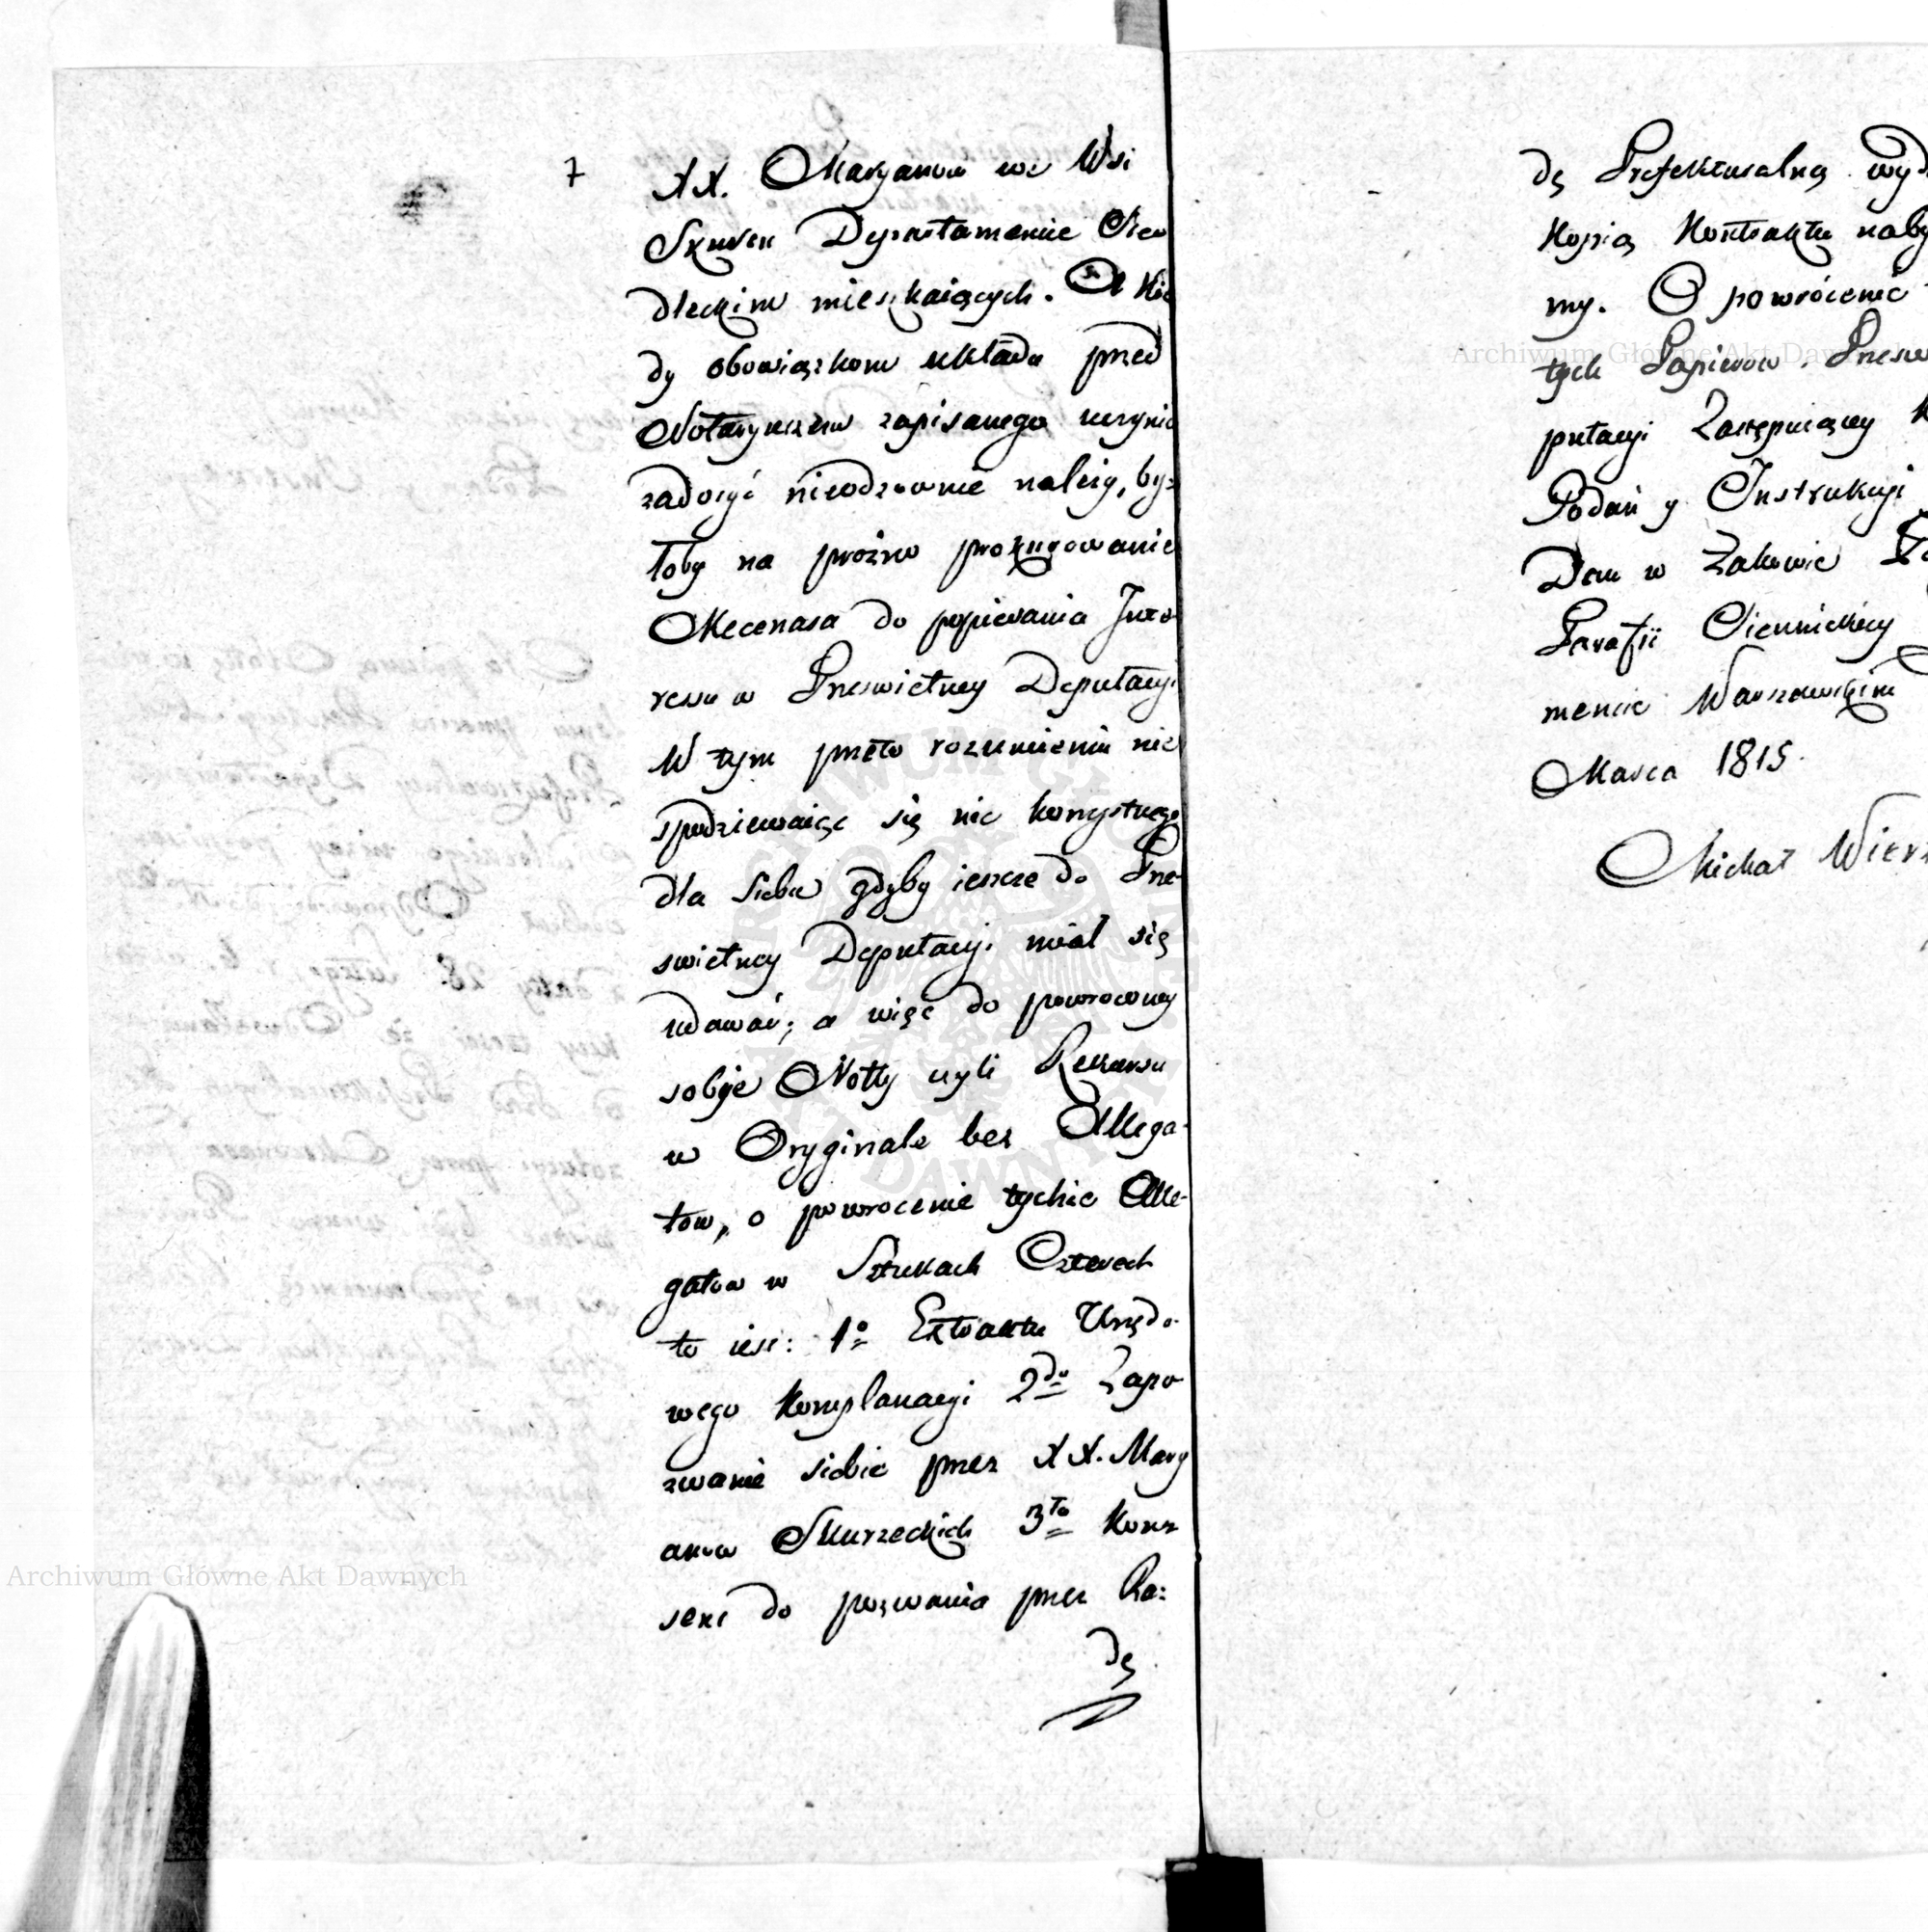 7
XX. Maryanow we Wsi
Skurcu Departamencie Sied
dleckim mieszkaiących. A kie
dy obowiązkom układu przed
Notaryuszem zapisanego uczynic
zadosyć nieodzownie należy, by:
łoby na prożno prokurowanie
Mecenasa do popierania Inte
ressu w Prześwietney Deputacyi
W tym przeto rozumieniu nie
spodziewaiąc się nic korzystnego
dla siebie gdyby ieszcze do Prze-
swietney Deputacyi miał się
udawać; a więc do powrocony
sobie Notty czyli Rekursu
w Oryginale bez Allega-
tow, o powrocenie tychże Alle-
gatow w Sztukach Czterech
to iest: 1º Extraktu Urzędo-
wego Komplanacyi 2do Zapo
zwanie siebie przez XX. Mary
anow Skurzeckich 3tio Kon
sens do pozwania przez Ra:
dę
dę Prefekturalną wyd
Kopią Kontraktu naby
my. O powrócenie
tych Papierow. Prześw
putacyi Zastępuiący
Podań y Instrukcyi
Dan w Żakowie
Parafii Siennickiey
mencie Warszawskim
Marca 1815.
Michał Wierz
Archiwum Główne Akt Dawnych
Archiwum Główne Akt Dawnych
ARCHIWUM GŁÓWNE AKT DAWNYCH